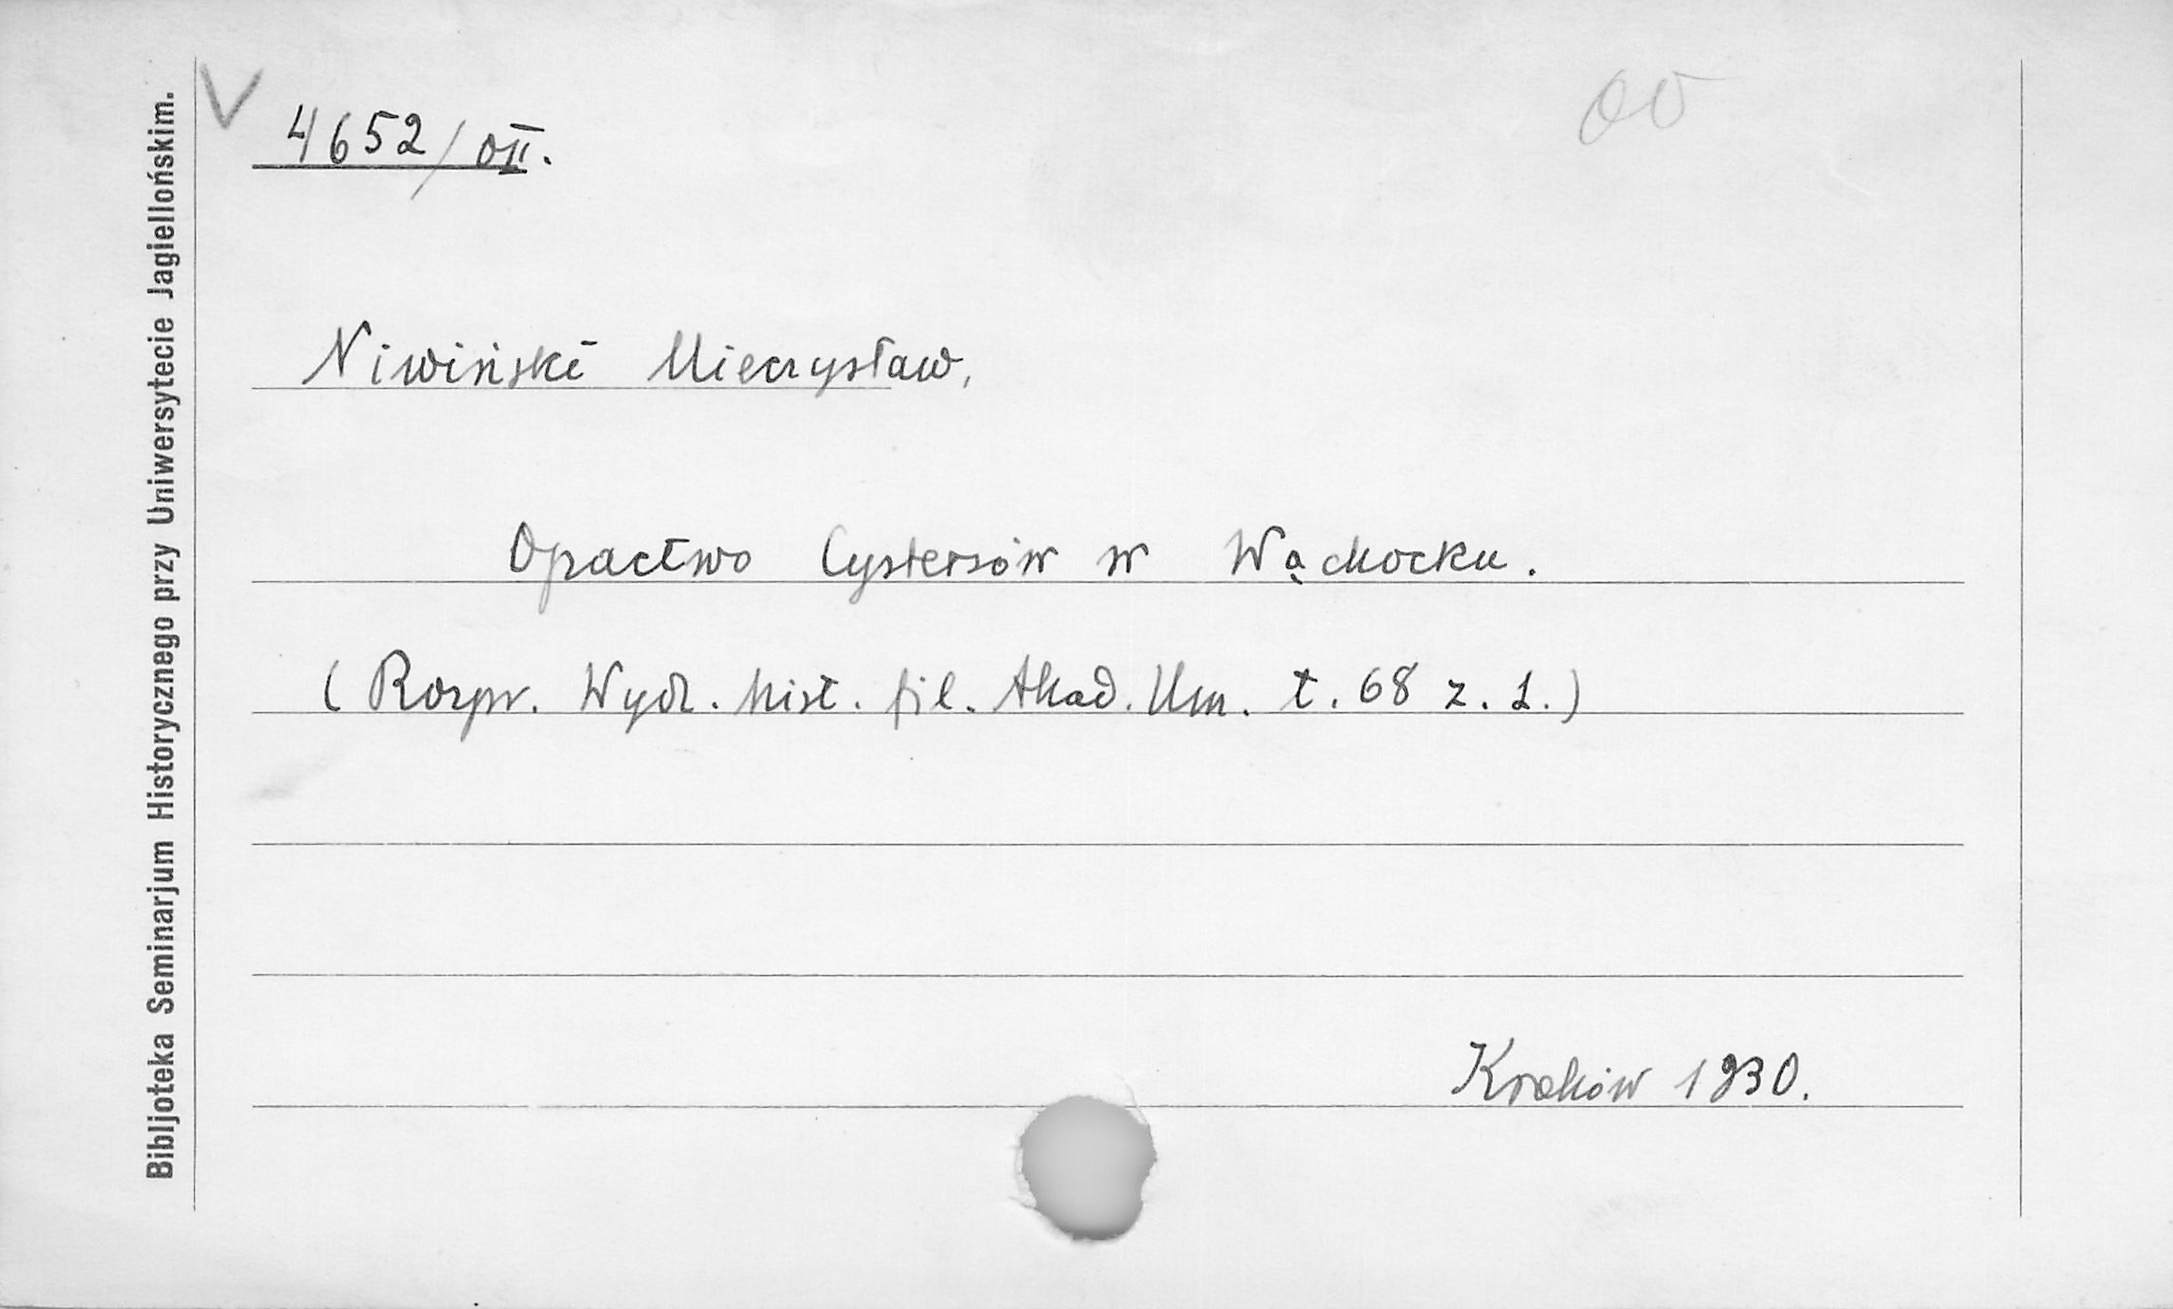 Bibljoteka Seminarjum Historycznego przy Uniwersytecie Jagiellońskim.
V
4652/OII.
Niwiński Mieczysław,
Opactwo Cystersów w Wąchocku.
(Rozpr. Wydz. hist. fil. Akad. Um. t. 68 z. 1.)
Kraków 1930.